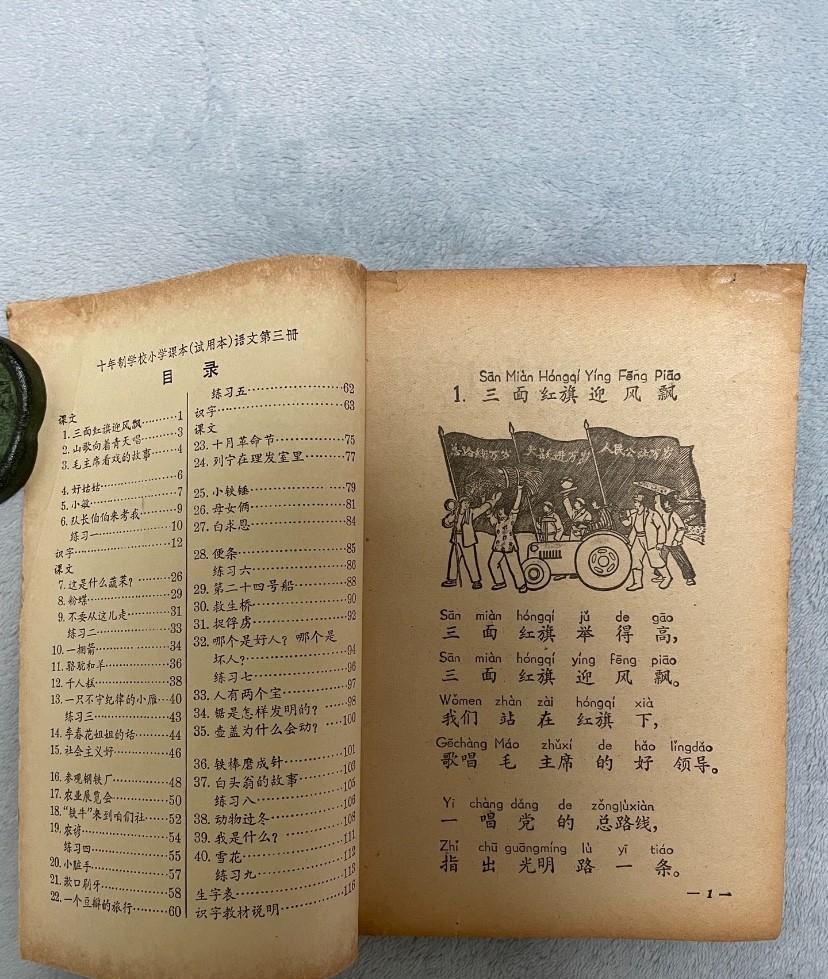 十年制学校小学课本(试用本)语文第三册
目 录
课文
1.三面红旗迎风飘………1
2.山歌向着青天唱………3
3.毛主席看戏的故事……4
4.好姑姑…………………6
5.小敏……………………7
6.队长伯伯来考我………9
练习一…………………10
识字……………………12
课文
7.这是什么蔬菜?………26
8.粉蝶……………………29
9.不要从这儿走…………31
练习二…………………33
10.一捆箭…………………34
11.骆驼和羊………………36
12.千人糕…………………38
13.一只不守纪律的小雁…40
练习三…………………43
14.李春花姐姐的话………44
15.社会主义好……………46
16.参观钢铁厂……………48
17.农业展览会……………50
18.“铁牛”来到咱们社……52
19.农谚……………………54
练习四…………………55
20.小脏手…………………57
21.漱口刷牙………………58
22.一个豆瓣的旅行………60
练习五…………………62
识字……………………63
课文
23.十月革命节……………75
24.列宁在理发室里………77
25.小铁锤…………………79
26.母女俩…………………81
27.白求恩…………………84
28.便条……………………85
练习六…………………86
29.第二十四号船…………88
30.救生桥…………………90
31.捉俘虏…………………92
32.哪个是好人?哪个是
坏人?…………………94
练习七…………………96
33.人有两个宝……………97
34.锯是怎样发明的?……98
35.壶盖为什么会动?……100
36.铁棒磨成针……………101
37.白头翁的故事…………103
练习八…………………105
38.动物过冬………………106
39.我是什么?……………108
40.雪花……………………111
练习九…………………112
生字表…………………113
识字教材说明…………116
Sān Miàn Hóngqí Yíng Fēng Piāo
1. 三 面 红旗 迎 风 飘
总路线万岁 大跃进万岁 人民公社万岁
Sān miàn hóngqí jǔ de gāo
三 面 红旗 举 得 高,
Sān miàn hóngqí yíng fēng piāo
三 面 红旗 迎 风 飘。
Wǒmen zhàn zài hóngqí xià
我们 站 在 红旗 下,
Gēchàng Máo zhǔxí de hǎo lǐngdǎo
歌唱 毛 主席 的 好 领导。
Yī chàng dǎng de zǒnglùxiàn
一 唱 党 的 总路线,
Zhǐ chū guāngmíng lù yī tiáo
指 出 光明 路 一 条。
— 1 —